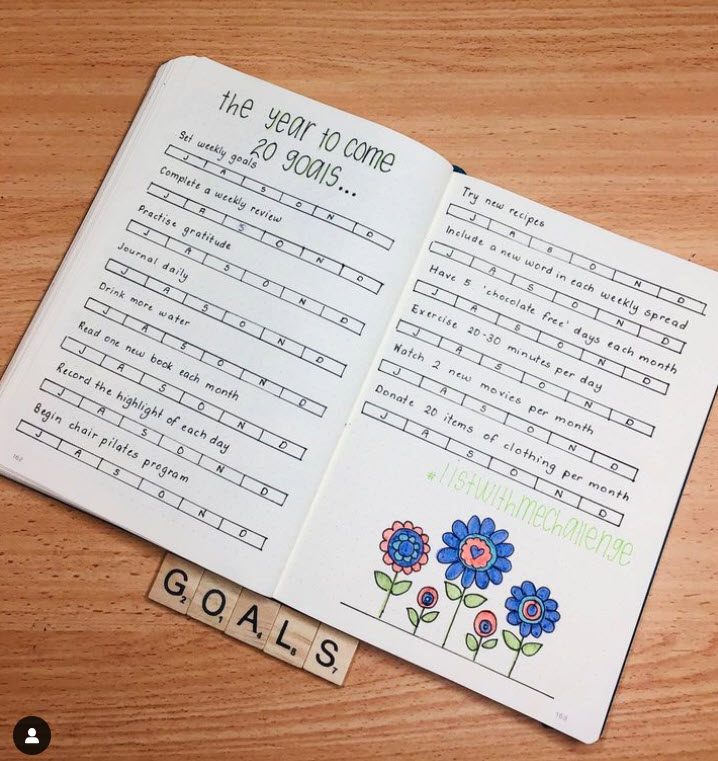 the year to come
20 goals...
Set weekly goals
J A S O N D
Complete a weekly review
J A S O N D
Practise gratitude
J A S O N D
Journal daily
J A S O N D
Drink more water
J A S O N D
Read one new book each month
J A S O N D
Record the highlight of each day
J A S O N D
Begin chair pilates program
J A S O N D
162
Try new recipes
J A S O N D
Include a new word in each weekly spread
J A S O N D
Have 5 'chocolate free' days each month
J A S O N D
Exercise 20-30 minutes per day
J A S O N D
Watch 2 new movies per month
J A S O N D
Donate 20 items of clothing per month
J A S O N D
#listwithmechallenge
163
GOALS